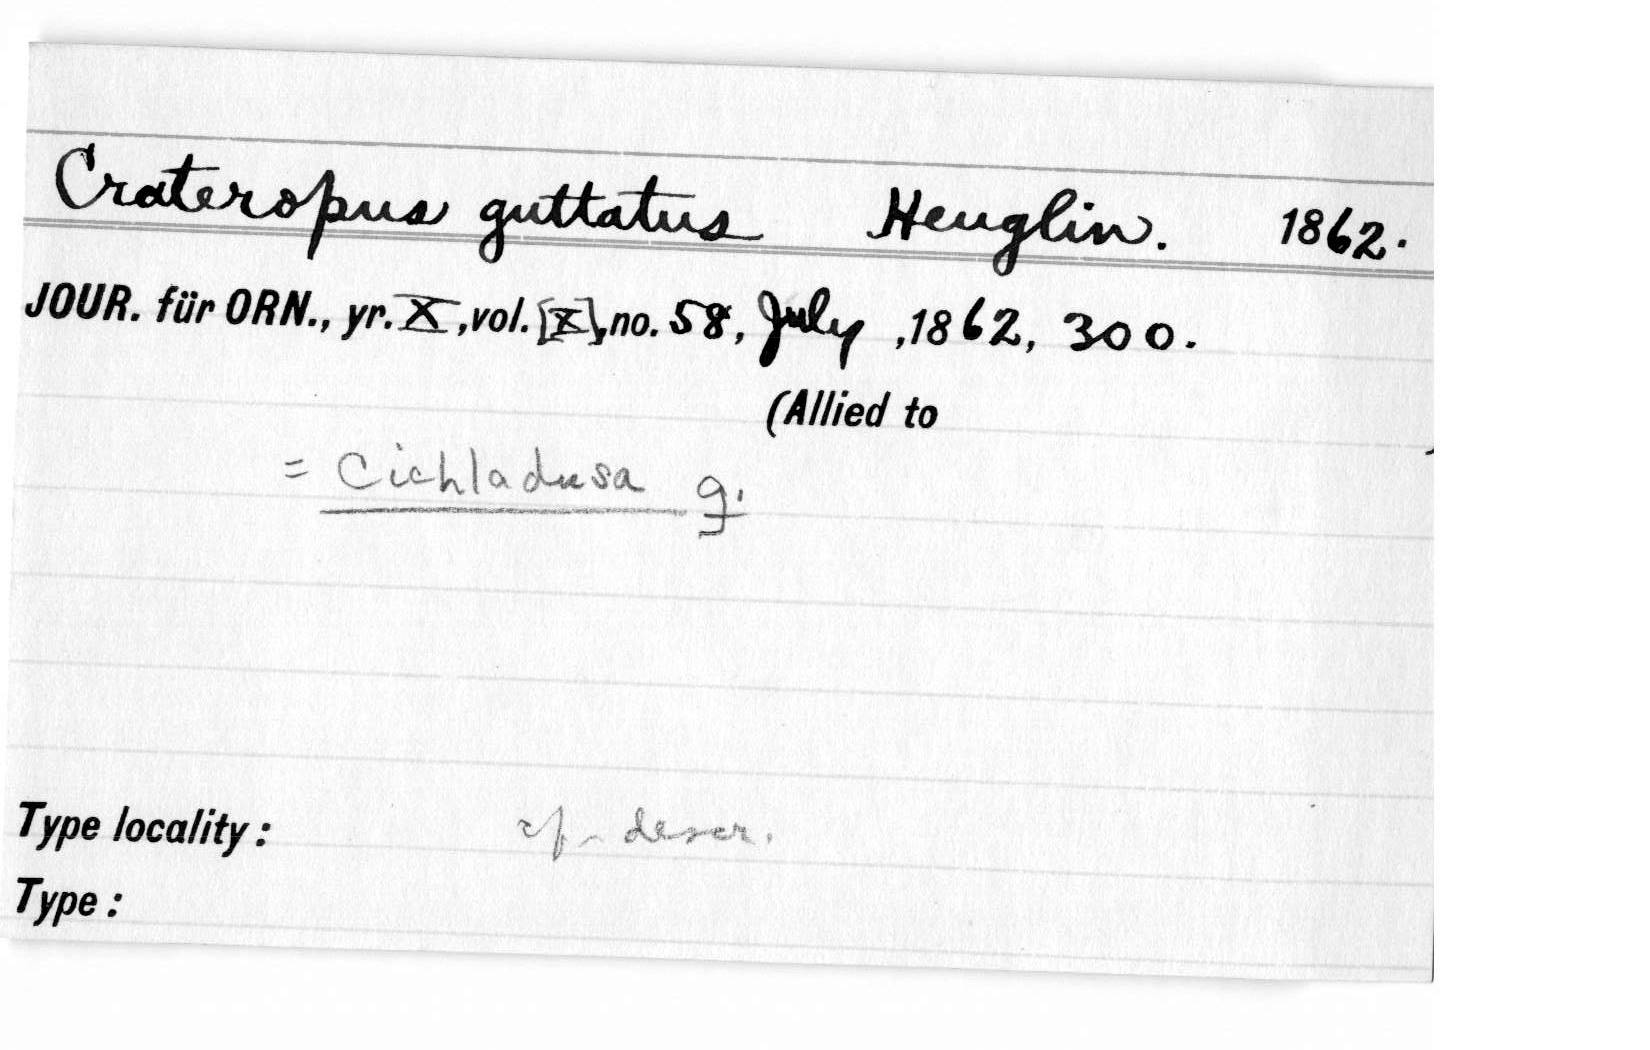 Crateropus guttatus Heuglin. 1862.
JOUR. für ORN., yr. X, vol. [X], no. 58, July, 1862, 300.
(Allied to )
= Cichladusa g.
Type locality: cf. descr.
Type: